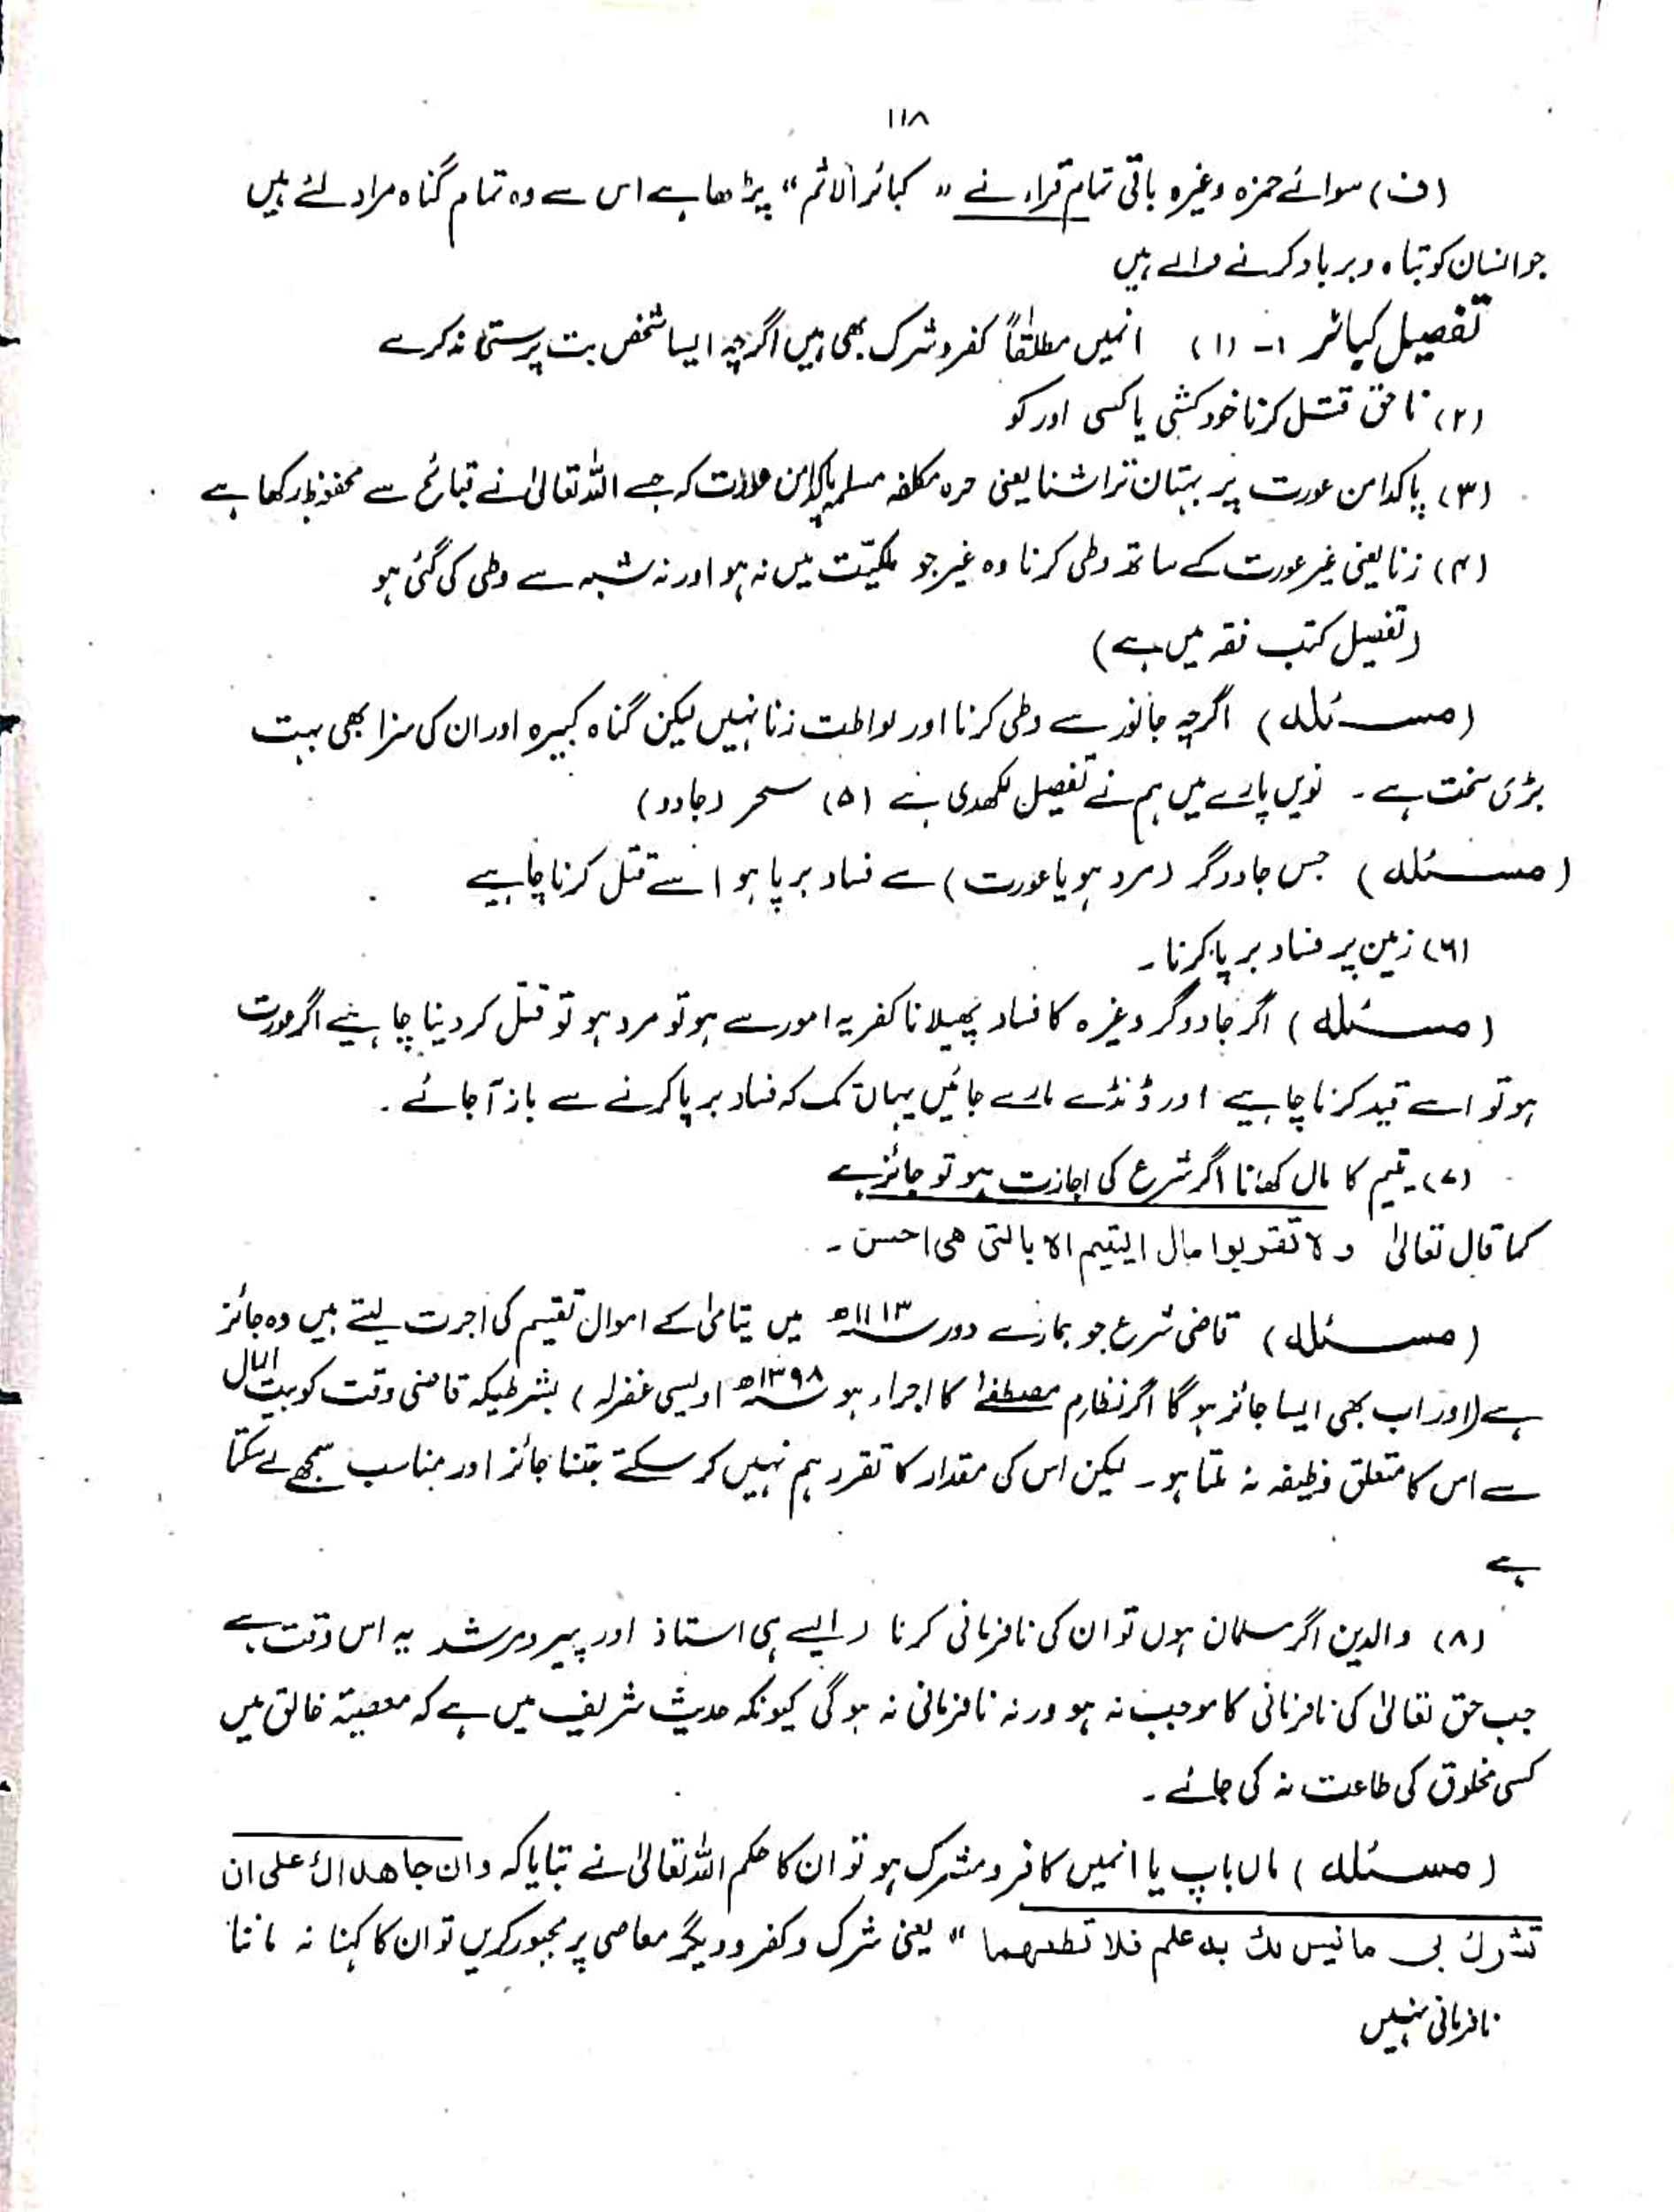 ۱۱۸
(ف) سوائے حمزہ وغیرہ باقی تمام قراء نے " کبائر الاثم " پڑھا ہے اس سے وہ تمام گناہ مراد لئے ہیں
جو انسان کو تباہ و برباد کرنے والے ہیں
تفصیل کبائر ۱۔ (۱) انمیں مطلقاً کفر و شرک بھی ہیں اگرچہ ایسا شخص بت پرستی نہ کرے
(۲) ناحق قتل کرنا خودکشی یا کسی اور کو
(۳) پاکدامن عورت پر بہتان تراشنا یعنی حرہ مکلفہ مسلمہ پاکدامن عورت کہ جسے اللہ تعالیٰ نے قبائح سے محفوظ رکھا ہے
(۴) زنا یعنی غیر عورت کے ساتھ وطی کرنا وہ غیر جو ملکیّت میں نہ ہو اور نہ شبہ سے وطی کی گئی ہو
(تفصیل کتب فقہ میں ہے)
(مسئلہ) اگرچہ جانور سے وطی کرنا اور لواطت زنا نہیں لیکن گناہ کبیرہ اور ان کی سزا بھی بہت
بڑی سخت ہے ۔ نویں پارے میں ہم نے تفصیل لکھدی ہے (۵) سحر (جادو)
(مسئلہ) جس جادوگر (مرد ہو یا عورت) سے فساد برپا ہو اسے قتل کرنا چاہیے
(۶) زمین پر فساد برپا کرنا ۔
(مسئلہ) اگر جادوگر وغیرہ کا فساد پھیلانا کفریہ امور سے ہو تو مرد ہو تو قتل کر دینا چاہئیے اگر عورت
ہو تو اسے قید کرنا چاہیے اور ڈنڈے مارے جائیں یہاں تک کہ فساد برپا کرنے سے باز آ جائے ۔
(۷) یتیم کا مال کھانا اگر شرع کی اجازت ہو تو جائز ہے
کما قال تعالیٰ و لا تقربوا مال الیتیم الا بالتی ھی احسن ۔
(مسئلہ) قاضی شرع جو ہمارے دور ۱۱۱۳ھ میں یتامیٰ کے اموال تقسیم کی اجرت لیتے ہیں وہ جائز
ہے (اور اب بھی ایسا جائز ہو گا اگر نظام مصطفےٰ کا اجراء ہو ۱۳۹۸ھ اویسی غفرلہ) بشرطیکہ قاضی وقت کو بیت المال
سے اس کا متعلق وظیفہ نہ ملتا ہو ۔ لیکن اس کی مقدار کا تقرر ہم نہیں کر سکتے جتنا جائز اور مناسب سمجھے لے سکتا
ہے
(۸) والدین اگر مسلمان ہوں تو ان کی نافرمانی کرنا (ایسے ہی استاذ اور پیر و مرشد یہ اس وقت ہے
جب حق تعالیٰ کی نافرمانی کا موجب نہ ہو ورنہ نافرمانی نہ ہو گی کیونکہ حدیث شریف میں ہے کہ معصیۃ خالق میں
کسی مخلوق کی طاعت نہ کی جائے ۔
(مسئلہ) ماں باپ یا انمیں کافر و مشرک ہو تو ان کا حکم اللہ تعالیٰ نے بتایا کہ وان جاھداك علی ان
تشرك بی ما لیس لك بہ علم فلا تطعھما " یعنی شرک و کفر و دیگر معاصی پر مجبور کریں تو ان کا کہنا نہ ماننا
نافرمانی نہیں